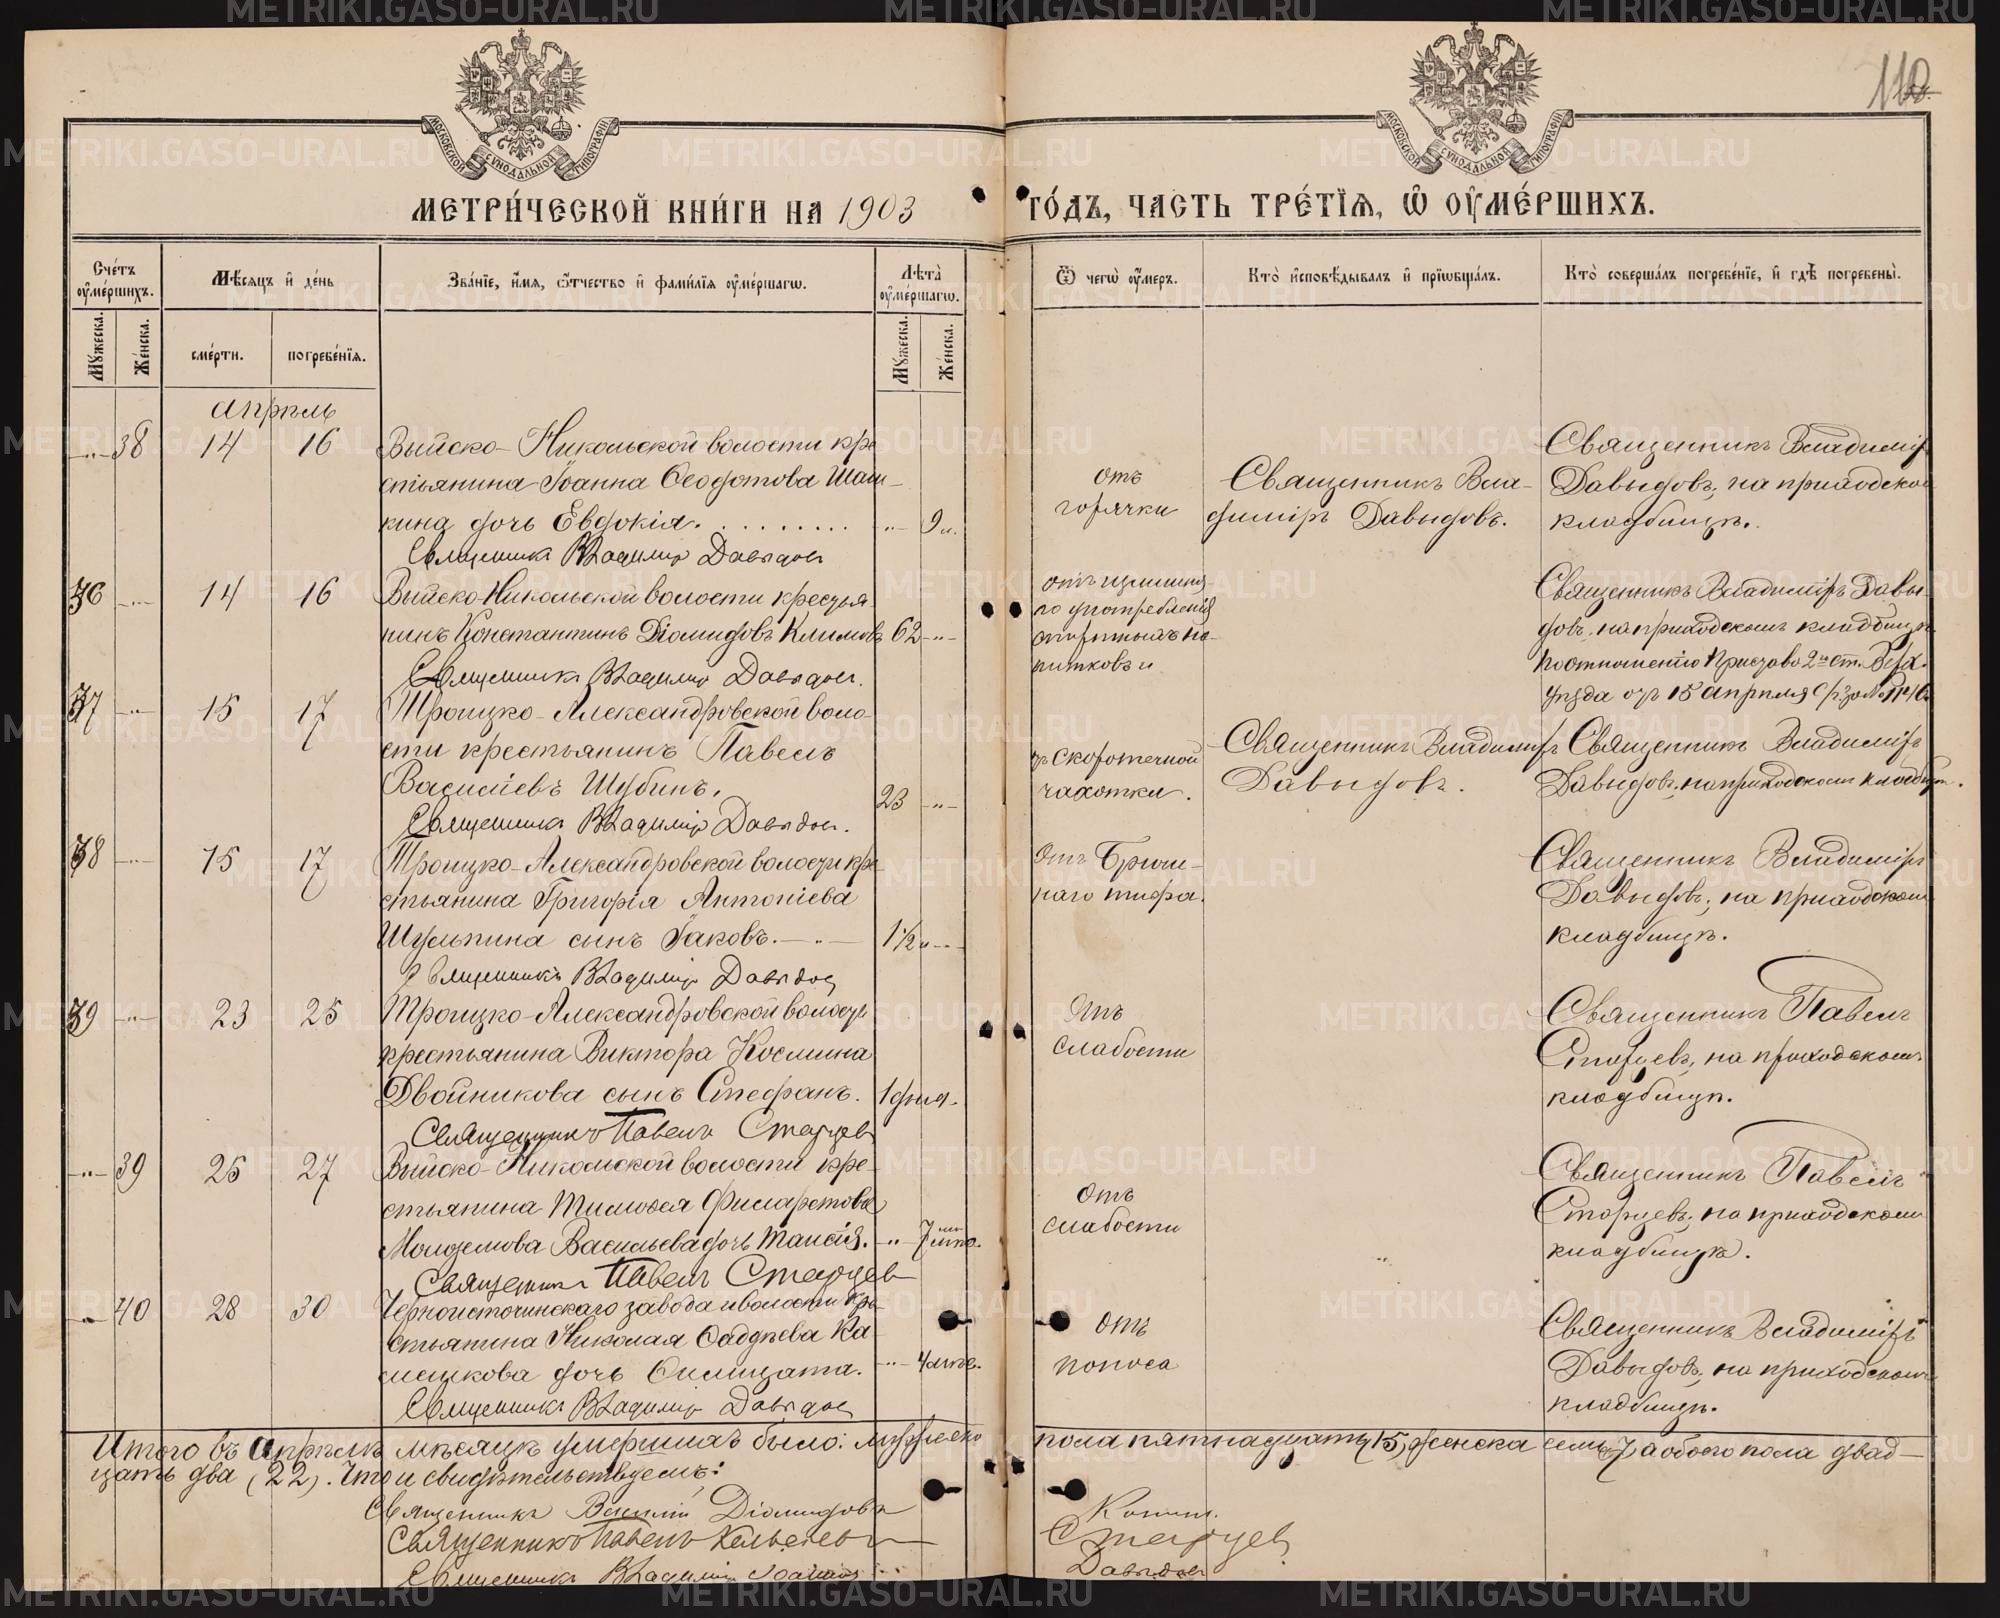 110
МОСКОВСКОЙ СУНОДАЛЬНОЙ ТИПОГРАФІИ
МОСКОВСКОЙ СУНОДАЛЬНОЙ ТИПОГРАФІИ
МЕТРИ́ЧЕСКОЙ КНИ́ГИ НА 1903 ГО́ДЪ, ЧАСТЬ ТРЕ́ТІѦ, Ѡ҆ ОУ҆МЕ́РШИХЪ.
Сче́тъ оу҆ме́ршихъ.
Мꙋ́жеска.
Же́нска.
Мѣ́сѧцъ и҆ де́нь
сме́рти.
погребе́нїѧ.
Зва́нїе, и҆́мѧ, ѻ҆́тчество и҆ фами́лїѧ оу҆ме́ршагѡ.
Лѣ́та оу҆ме́ршагѡ.
Мꙋ́жеска.
Же́нска.
Ѿ чегѡ̀ оу҆́меръ.
Кто̀ и҆сповѣ́дывалъ и҆ прїѡбща́лъ.
Кто̀ соверша́лъ погребе́нїе, и҆ гдѣ̀ погребены̀.
апрѣль
38 14 16 Выйско-Никольской волости кре
стьянина Іоанна Ѳеодотова Шаш-
кина дочь Евдокія. 9 л.
Священникъ Владиміръ Давыдовъ
отъ
горячки
Священникъ Вла-
диміръ Давыдовъ.
Священникъ Владиміръ
Давыдовъ, на приходском
кладбищѣ.
36 14 16 Выйско-Никольской волости крестья
нинъ Константинъ Діомидовъ Климовъ 62
Священникъ Владиміръ Давыдовъ.
отъ излишня
го употребленія
спиртныхъ на-
питковъ
Священникъ Владиміръ Давы
довъ, на приходскомъ кладбищѣ
по отношенію Пристава 2го ст. Верх.
уѣзда отъ 15 апрѣля с/г за №
37 15 17 Троицко-Александровской воло-
сти крестьянинъ Павелъ
Василіевъ Шубинъ. 23
Священникъ Владиміръ Давыдовъ.
скоротечной
чахотки.
Священникъ Владиміръ
Давыдовъ.
Священникъ Владиміръ
Давыдовъ, на приходском кладбищѣ.
38 15 17 Троицко-Александровской волости кре
стьянина Григорія Антоніева
Шульпина сынъ Іаковъ. 1½
Священникъ Владиміръ Давыдовъ
Отъ брюш-
наго тифа.
Священникъ Владиміръ
Давыдовъ, на приходском
кладбищѣ.
39 23 25 Троицко-Александровской волости
крестьянина Виктора Космина
Двойникова сынъ Стефанъ. 1 дня.
Священникъ Павелъ Старцевъ
Отъ
слабости
Священникъ Павелъ
Старцевъ, на приходскомъ
кладбищѣ.
39 25 27 Выйско-Никольской волости кре-
стьянина Тимоѳея Филаретова
Васильева дочь Таисія. 7
Священникъ Павелъ Старцевъ
Отъ
слабости
Священникъ Павелъ
Старцевъ, на приходском
кладбищѣ.
40 28 30 Черноисточинскаго завода и волости кре-
стьянина Николая Ѳаддѣева Ка-
машкова дочь Олимпіада. 4
Священникъ Владиміръ Давыдовъ
Отъ
поноса
Священникъ Владиміръ
Давыдовъ, на приходском
кладбищѣ.
Итого въ апрѣлѣ мѣсяцѣ умершихъ было: мужеска пола пятнадцать (15), женска семь (7) а обоего пола двад-
цать два (22). Что и свидѣтельствуемъ:
Священникъ Василій Діомидовъ
Священникъ Павелъ Старцев
Священникъ Владиміръ Давыдов
METRIKI.GASO-URAL.RU